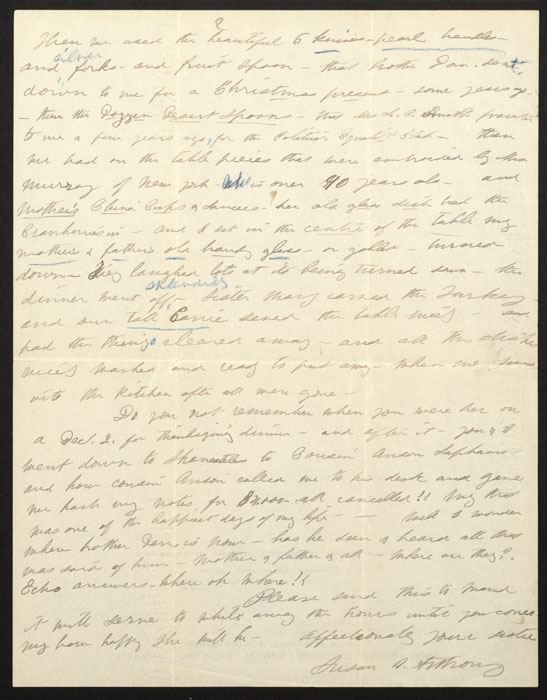 2
Then we used the beautiful 6 knives - pearl handles -
silver
and forks - and fruit spoon - that brother Dan. sent
down to me for a Christmas present - some years ago
- then the Dozzen Desert Spoons - that Mr. L. C. Smith
to me a few years ago, for the Political Equality Club - then
we had on the table pieces that were embroided by Miss
Murray of New York who is over 90 years old - and
Mother's China Cups & Saucers - her old glass dish had the
Cranberries in - and I set in the centre of the table my
mother & father's old brandy glass - or goblet - turned
down - they laughed lots at its being turned down - the
splendidly
dinner went off - Sister Mary carved the Turkey -
and our tall Carrie served the table nicely - and
had the things cleared away - and all the dishes
nicely washed and ready to put away - when we
into the Kitchen after all were gone -
Do you not remember when you were here on
a Dec. 2. for thanksgiving dinner - and after it - you & I
went down to Skaneateles to Cousin Anson Laphams
and how cousin Anson called me to his desk and gave
me back my notes for all cancelled!! Why this
was one of the happiest days of my life - well I wonder
where brother Dan is now - has he seen & heard all that
was said of him - Mother & father & all - where are they?
Echo answers - where oh where!!
Please send this to Maud
it will serve to while away the hours until you come
my how happy she will be - affectionately your sister
Susan B. Anthony